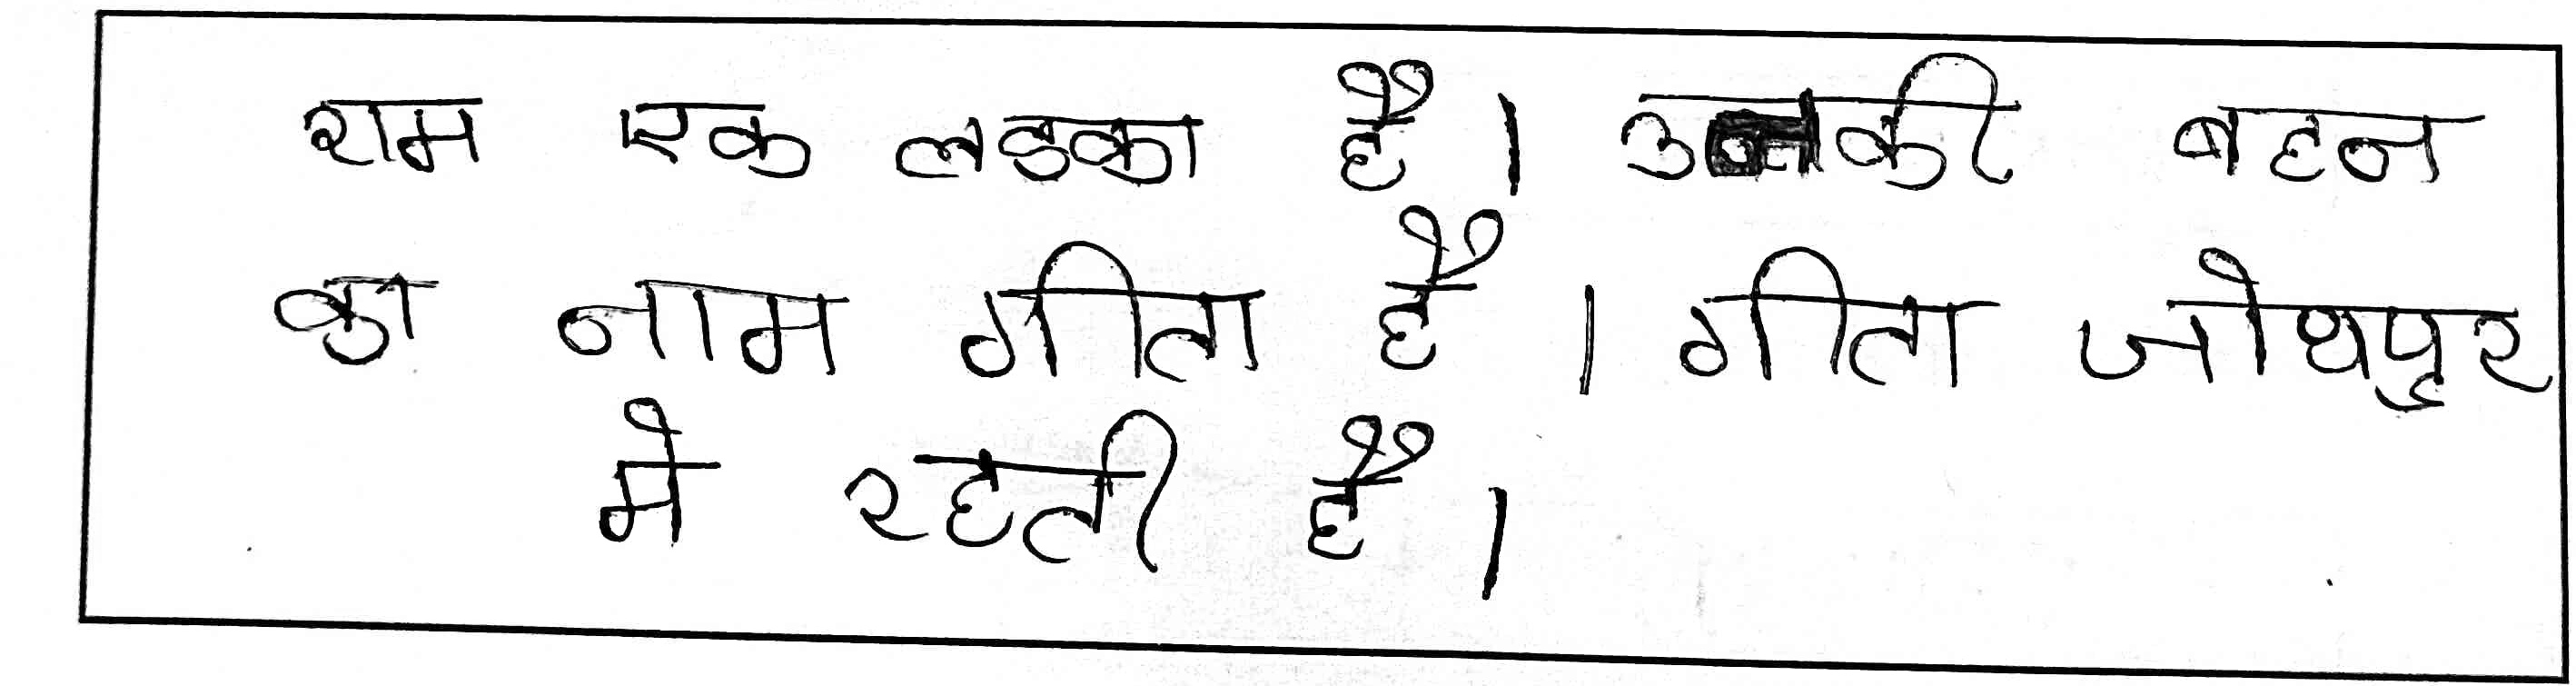 राम एक लडका है। उनकी बहन
का नाम गीता है। गीता जोधपुर
मे रहती है।